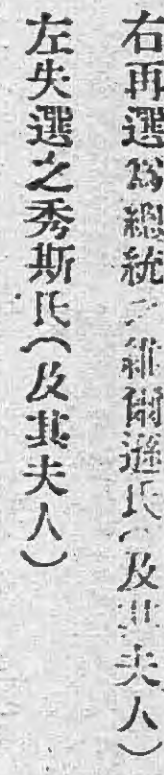 右再選爲總統之維爾遜氏（及其夫人）
左失選之秀斯氏（及其夫人）